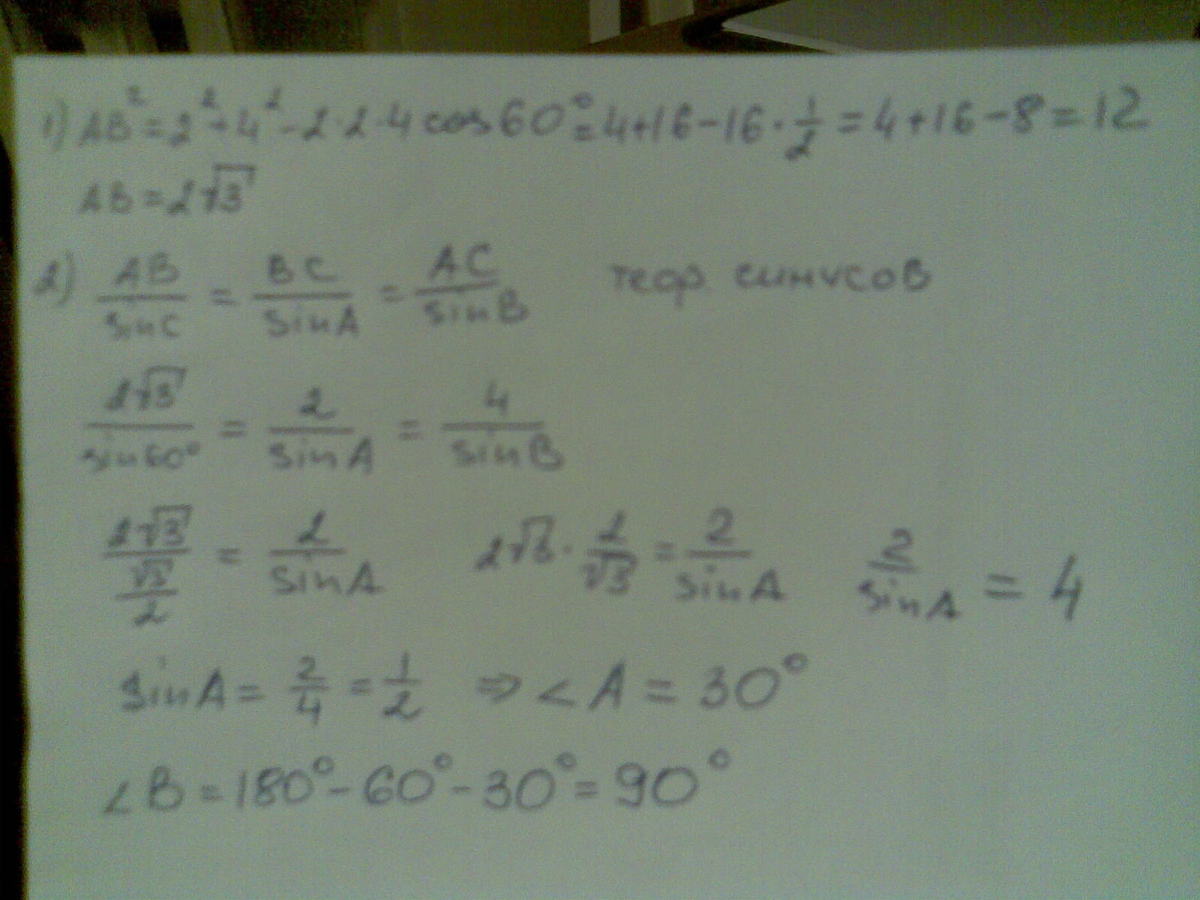 1) AB² = 2² + 4² - 2·2·4 cos 60° = 4+16-16·1/2 = 4+16-8 = 12
AB = 2√3
2) AB/sin C = BC/sin A = AC/sin B теор. синусов
2√3/sin 60° = 2/sin A = 4/sin B
2√3/(√3/2) = 2/sin A 2√3 · 2/√3 = 2/sin A 2/sin A = 4
sin A = 2/4 = 1/2 ⇒ ∠A = 30°
∠B = 180° - 60° - 30° = 90°